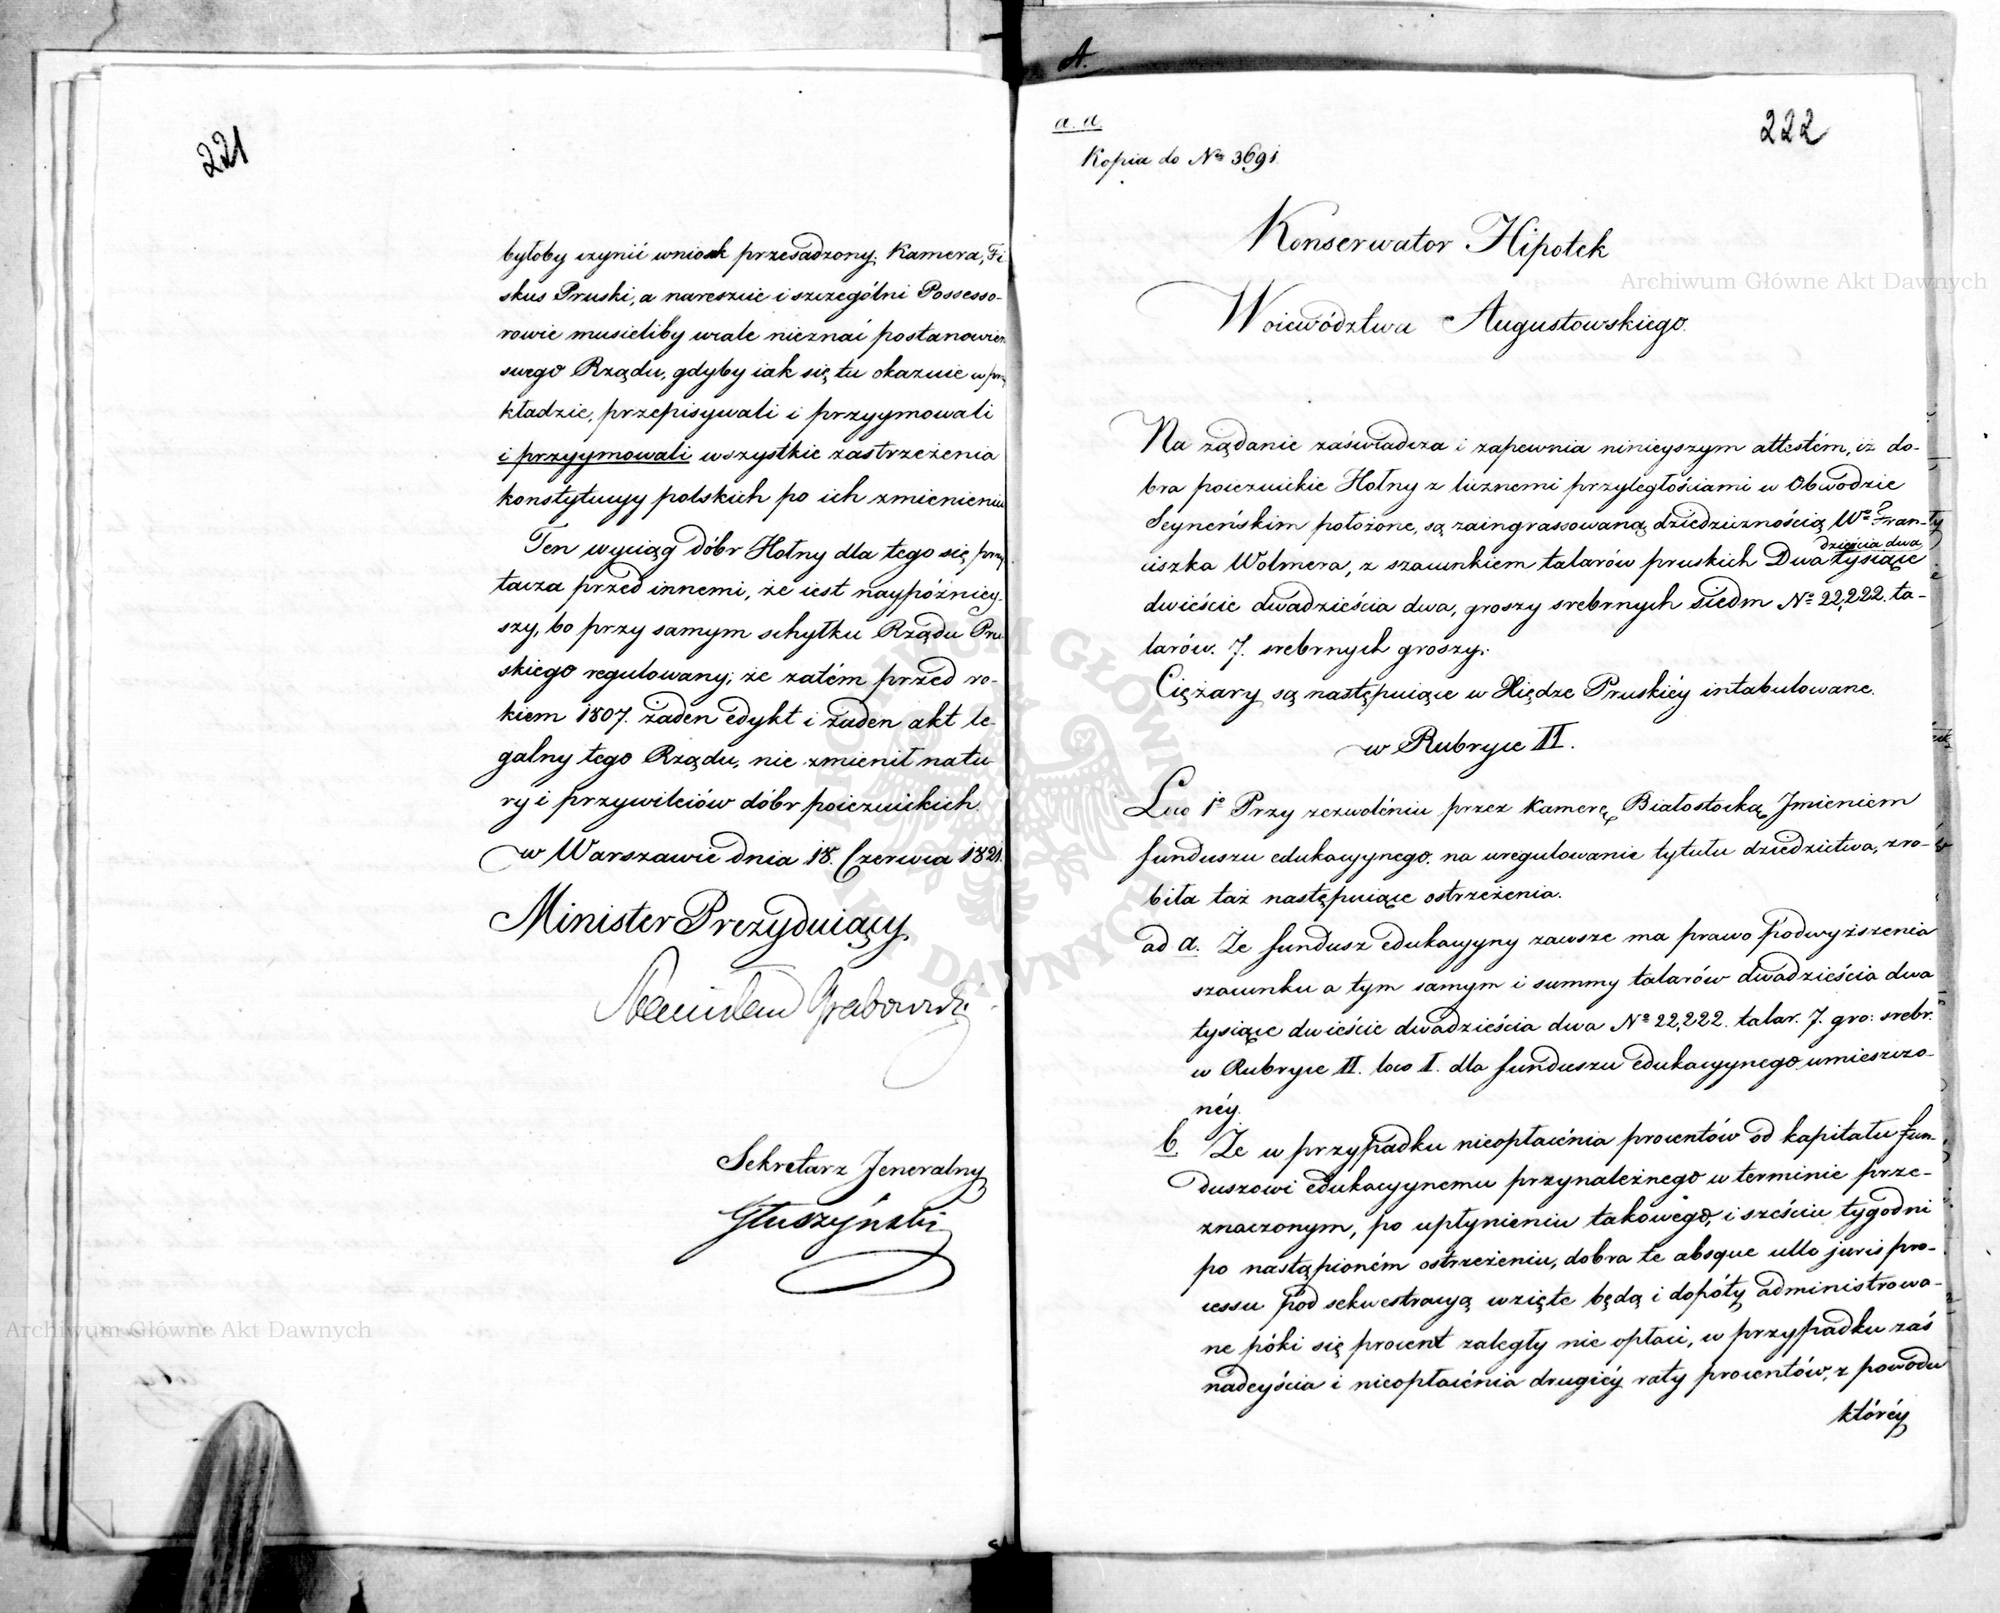 221
byłoby czynić wniosk przesadzony. Kamera, Fi
skus Pruski, a nareszcie i szczególni Possesso-
rowie musieliby wcale nieznać postanowień
swego Rządu, gdyby iak się tu okazuie w prz
kładzie, przepisywali i przyymowali
i przyymowali wszystkie zastrzeżenia
konstytucyy polskich po ich zmienieniu
Ten wyciąg dóbr Hołny dla tego się przy
tacza przed innemi, że iest naypóźniey-
szy, bo przy samym schyłku Rządu Pru
skiego regulowany; że zatém przed ro-
kiem 1807. żaden edykt i żaden akt le-
galny tego Rządu, nie zmienił natu
ry i przywileiów dóbr poiezuickich.
w Warszawie dnia 18. Czerwca 1821.
Minister Prezyduiący
Stanisław Grabowski
Sekretarz Jeneralny
Głuszyński
A.
a. a.
222
Kopia do Nro 3691.
Konserwator Hipotek
Woiewództwa Augustowskiego.
Na żądanie zaświadcza i zapewnia ninieyszym attestém, iż do-
bra poiezuickie Hołny z licznemi przyległościami w Obwodzie
Seyneńskim położone, są zaingrassowaną dziedzicznością Wo Fran-
dzieścia dwa
ciszka Wolmera, z szacunkiem talarów pruskich Dwa tysiące
dwieście dwadzieścia dwa, groszy srebrnych siedm No 22,222. ta-
larów. 7. srebrnych groszy.
Ciężary są następuiące w Xiędze Pruskiéy intabulowane.
w Rubryce II.
Loco 1o Przy zezwoleniu przez Kamerę Białostocką Jmieniem
funduszu edukacyynego. na uregulowanie tytułu dziedzictwa, zro-
biła taż następuiące ostrzeżenia.
ad a. Że fundusz edukacyyny zawsze ma prawo podwyższenia
szacunku a tym samym i summy talarów dwadzieścia dwa
tysiące dwieście dwadzieścia dwa No 22,222. talar. 7. gro: srebr.
w Rubryce II. loco I. dla funduszu edukacyynego umieszczo-
néy.
b Że w przypadku nieopłacénia procentów od kapitału fun-
duszowi edukacyynemu przynależnego w terminie prze-
znaczonym, po upłynieniu takowégo, i sześciu tygodni
po nastąpioném ostrzeżeniu, dobra te absque ullo juris pro-
cessu pod sekwestracyą wzięte będą i dopóty administrowa-
ne póki się procent zaległy nie opłaci, w przypadku zaś
nadeyścia i nieopłacénia drugiéy raty procentów, z powodu
któréy
Archiwum Główne Akt Dawnych
Archiwum Główne Akt Dawnych
ARCHIWUM GŁÓWNE AKT DAWNYCH